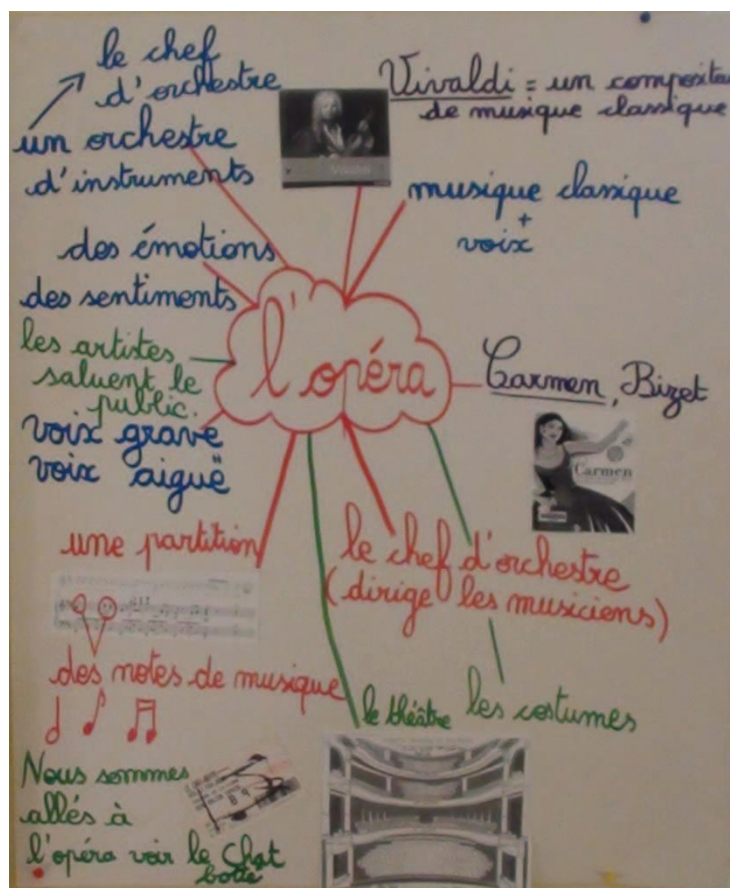 le chef
d'orchestre
un orchestre
d'instruments
Vivaldi = un composite
de musique classique
Vivaldi
musique classique
+
voix
des émotions
des sentiments
l'opéra
les artistes
saluent le
public.
voix grave
voix aiguë
Carmen, Bizet
Carmen
une partition
le chef d'orchestre
(dirige les musiciens)
des notes de musique
le théâtre
les costumes
Nous sommes
allés à
l'opéra voir le Chat
botté